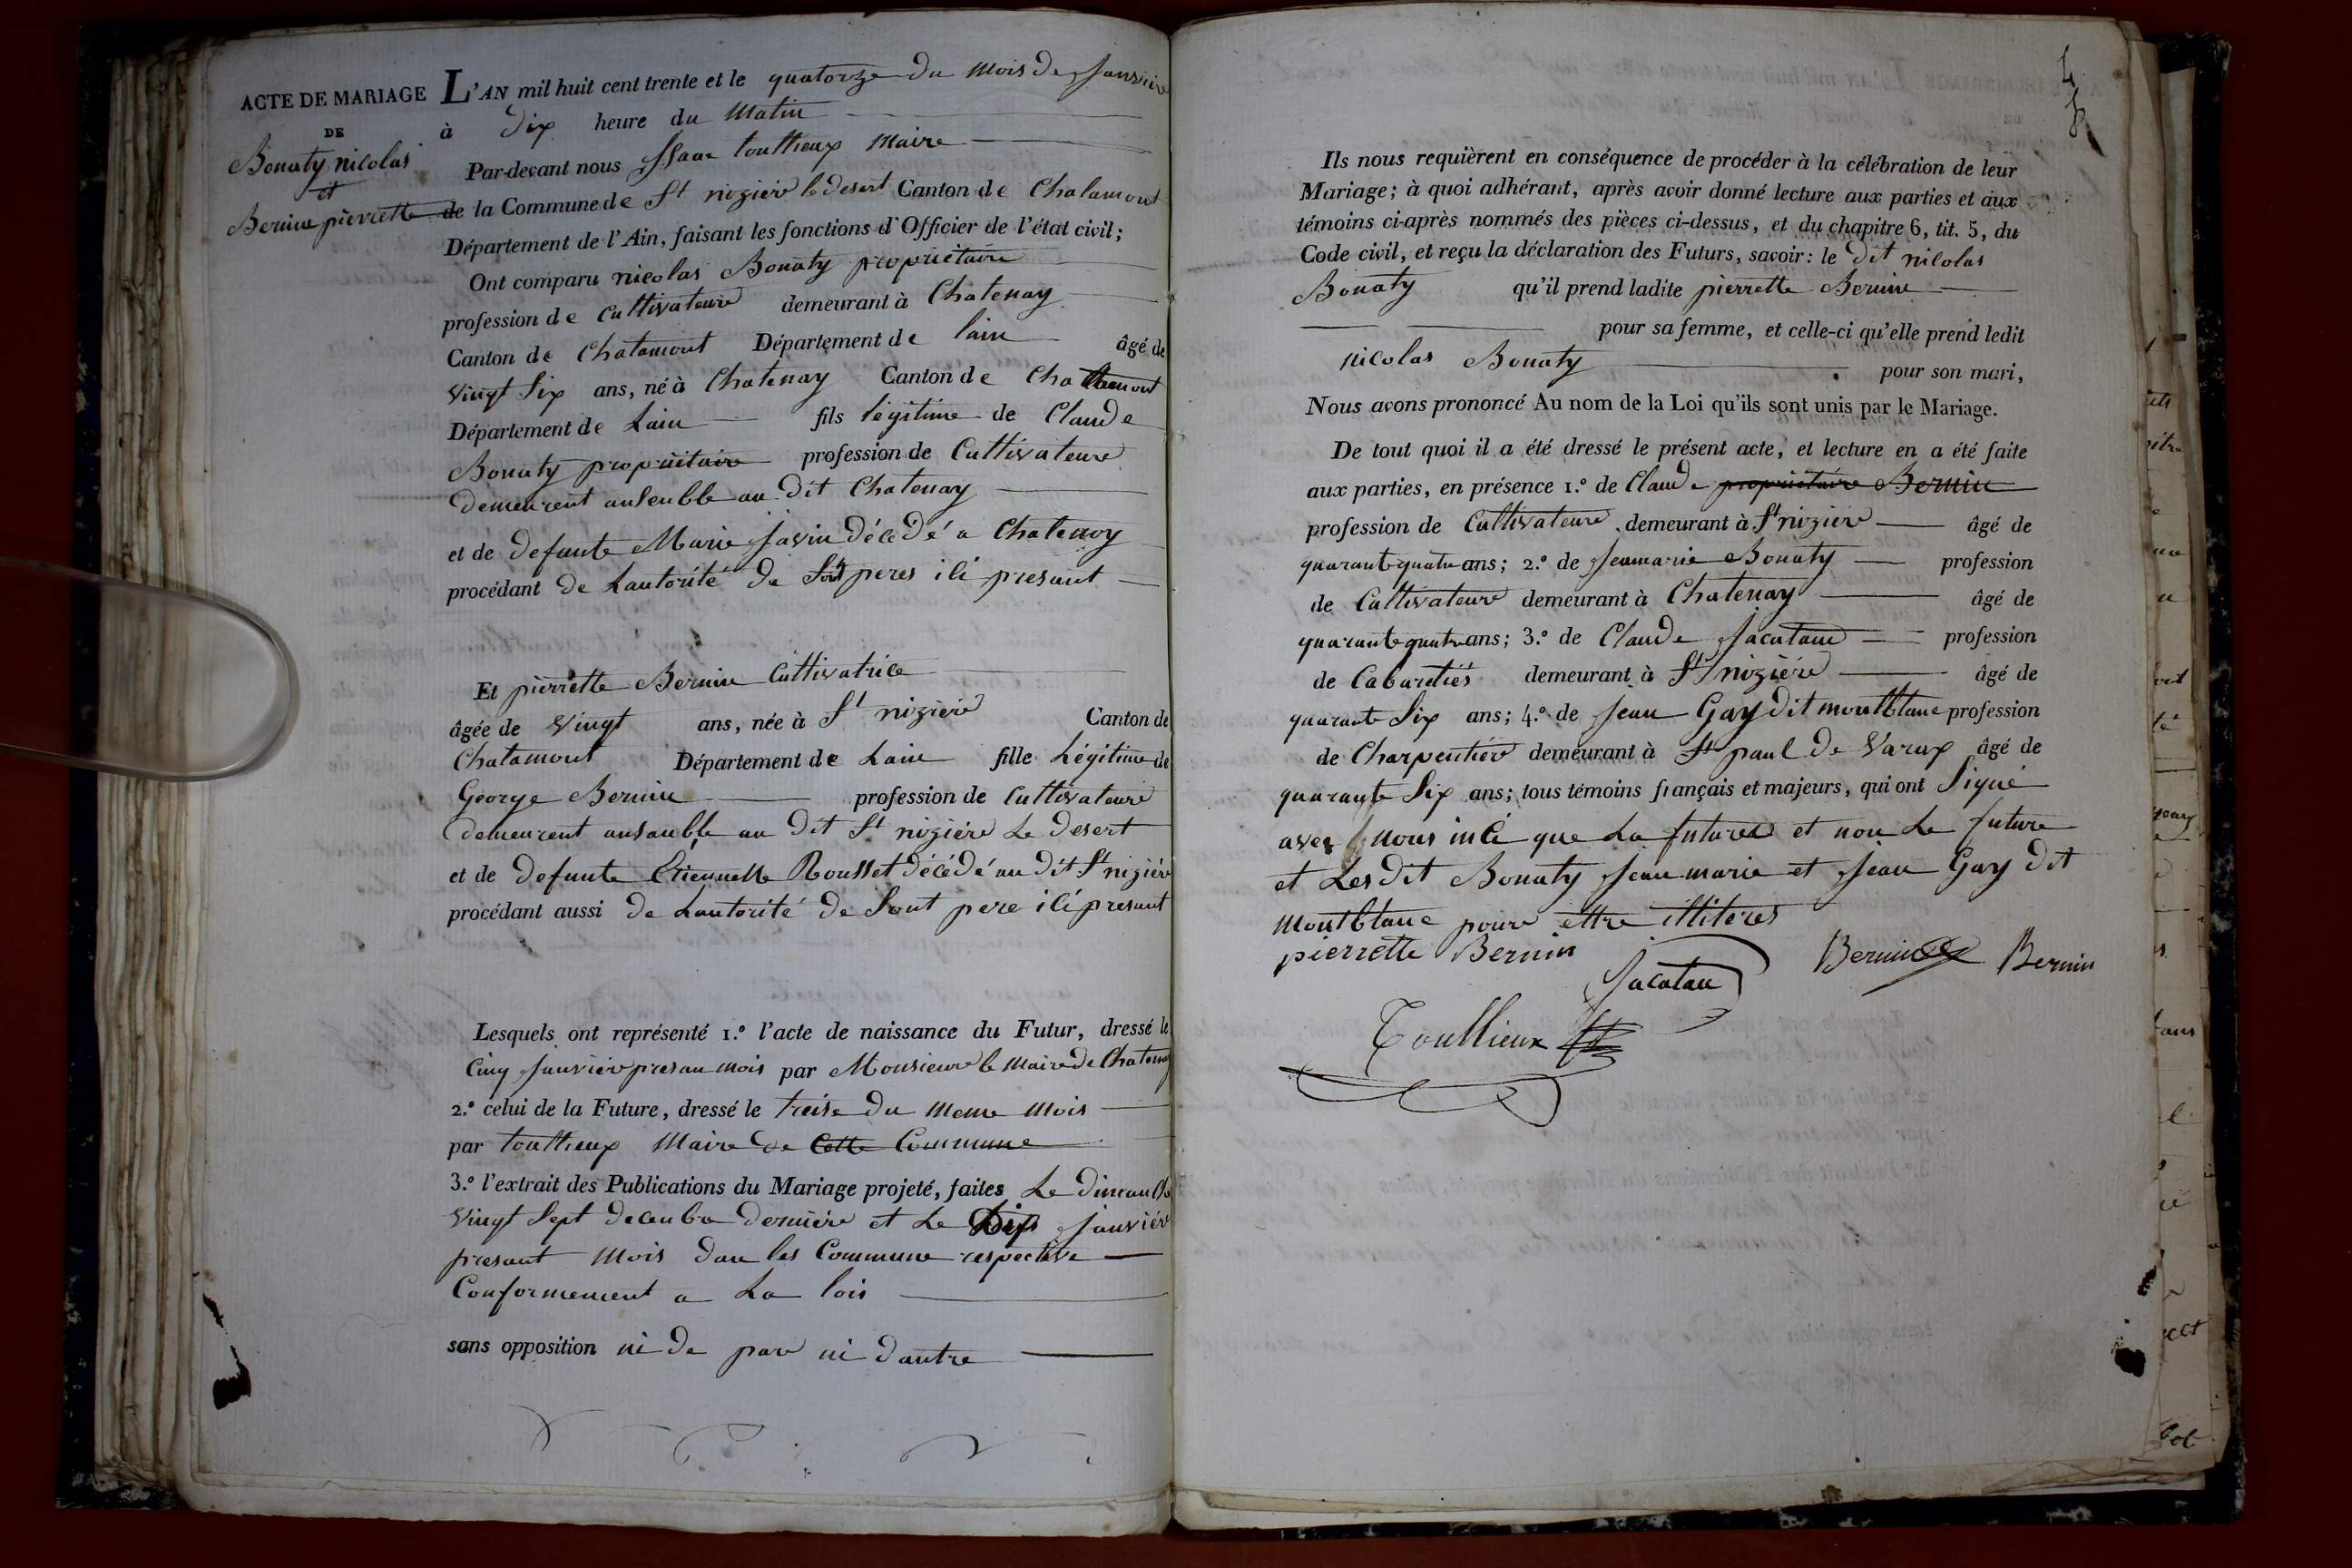 ACTE DE MARIAGE
DE
Bonaty nicolas
et
Bernin pierrette
L'AN mil huit cent trente et le quatorze du mois de Janvier
à Dix heure du Matin
Par-devant nous Isaac touttieux Maire
de la Commune de St nizier le desert Canton de Chalamont
Département de l'Ain, faisant les fonctions d'Officier de l'état civil;
Ont comparu nicolas Bonaty propriétaire
profession de Cultivateure demeurant à Chatenay
Canton de Chatamont Département de lain âgé de
vingt Six ans, né à Chatenay Canton de Chatamont
Département de Lain fils légitime de Claude
Bonaty propriétaire profession de Cultivateure
demeurent ansenble au dit Chatenay
et de defunte Marie Javin décédé a Chatenoy
procédant de Lautorité de Sont peres ili presant
Et pierrette Bernin Cultivatrice
âgée de vingt ans, née à St nizière Canton de
Chatamont Département de Lain fille Légitime de
George Bernin profession de Cultivateure
demeurent ansanble au dit St nizière Le desert
et de defunte Etiennette Rousset décédé au dit St nizière
procédant aussi de Lautorité de Sont pere ili presant
Lesquels ont représenté 1.º l'acte de naissance du Futur, dressé le
Cinq Janvier presan mois par Monsieure le Maire de Chatenay
2.º celui de la Future, dressé le treise du meme mois
par touttieux Maire de Cette Commune
3.º l'extrait des Publications du Mariage projeté, faites Le dimanche
vingt Sept decenbre dernière et Le Dix Janvière
presant mois dan les Commune respective
Conformement a La lois
sans opposition ni de par ni dautre
4
Ils nous requièrent en conséquence de procéder à la célébration de leur
Mariage; à quoi adhérant, après avoir donné lecture aux parties et aux
témoins ci-après nommés des pièces ci-dessus, et du chapitre 6, tit. 5, du
Code civil, et reçu la déclaration des Futurs, savoir: le dit nicolas
Bonaty qu'il prend ladite pierrette Bernin
pour sa femme, et celle-ci qu'elle prend ledit
nicolas Bonaty pour son mari,
Nous avons prononcé Au nom de la Loi qu'ils sont unis par le Mariage.
De tout quoi il a été dressé le présent acte, et lecture en a été faite
aux parties, en présence 1.º de Claude propriétaire Bernin
profession de Cultivateure demeurant à St nizière âgé de
quarante quatre ans; 2.º de Jeanmarie Bonaty profession
de Cultivateure demeurant à Chatenay âgé de
quarante quatre ans; 3.º de Claude Jacatau profession
de Cabaretiés demeurant à St nizière âgé de
quarante Six ans; 4.º de Jean Gay dit montblanc profession
de Charpentière demeurant à St paul de Varax âgé de
quarante Six ans; tous témoins français et majeurs, qui ont Signé
avec nous insi que La future et non Le future
et Les dit Bonaty Jean marie et Jean Gay dit
montblanc poure ettre illiteres
pierrette Bernin
Jacatau
Bernin
Bernin
Toullieux